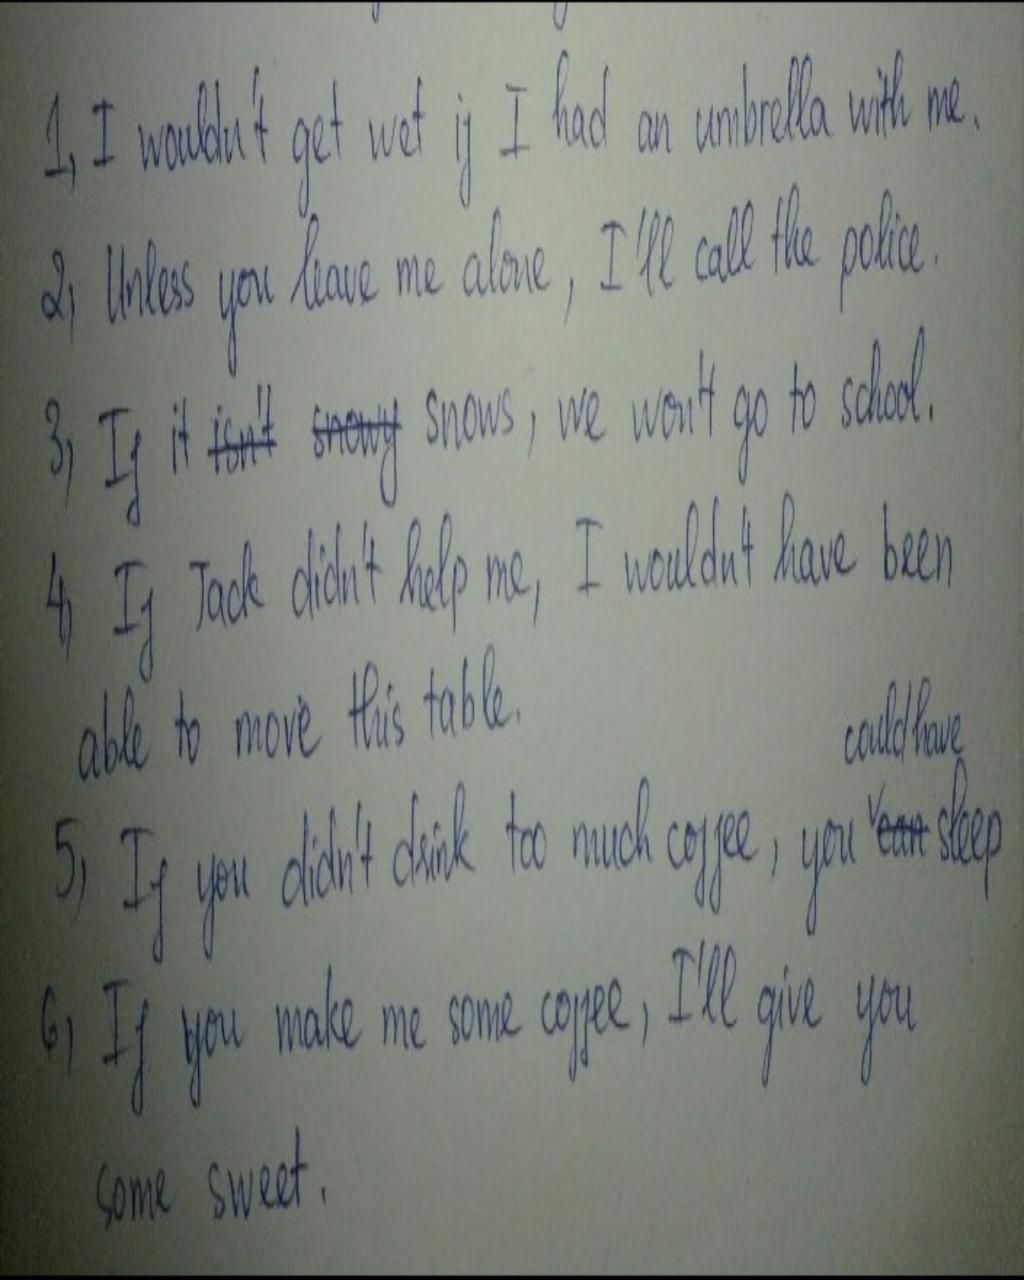 1, I wouldn't get wet if I had an umbrella with me.
2, Unless you leave me alone, I'll call the police.
3, If it isn't snowy snows, we won't go to school.
4, If Jack didn't help me, I wouldn't have been
able to move this table.
could have
5, If you didn't drink too much coffee, you can sleep
6, If you make me some coffee, I'll give you
some sweet.